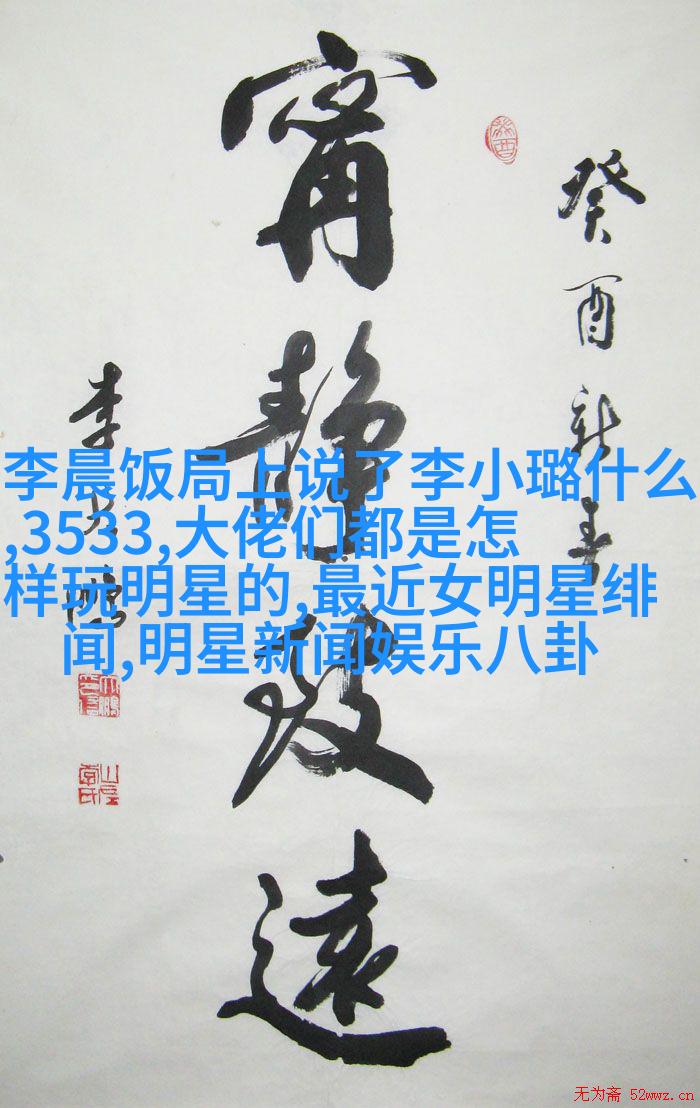 癸酉新春
甯静致远
李大鹏
李晨饭局上说了李小璐什么
,3533,大佬们都是怎
样玩明星的,最近女明星绯
闻,明星新闻娱乐八卦
无为斋 52wwz.cn